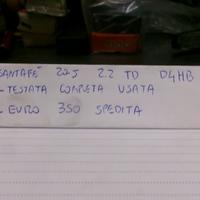 SANTAFE' 22S 2.2 TD D4HB
- TESTATA COMPLETA USATA
- EURO 350 SPEDITA